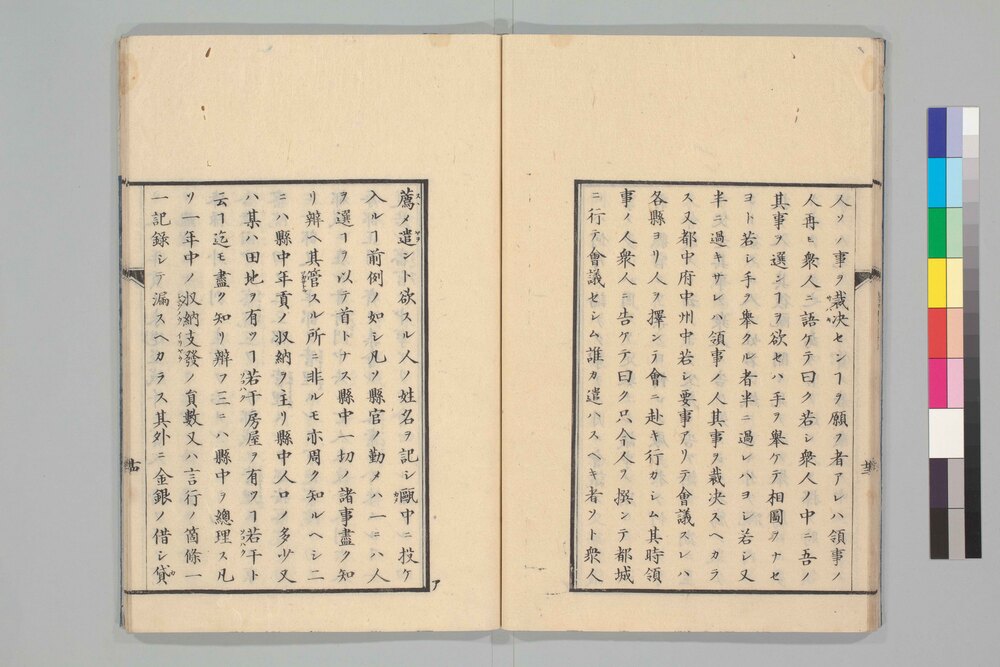 人ソノ事ヲ裁决センヿヲ願フ者アレハ領事ノ
人再ヒ衆人ニ語ケテ曰ク若シ衆人ノ中ニ吾ノ
其事ヲ選ンヿヲ欲セハ手ヲ舉ケテ相圖ヲナセ
ヨト若シ手ヲ舉クル者半ニ過レハヨシ若シ又
半ニ過キサレハ領事ノ人其事ヲ裁决スヘカラ
ス又都中府中州中若シ要事アリテ會議スレハ
各縣ヨリ人ヲ擇ンテ會ニ赴キ行カシム其時領
事ノ人衆人ニ告ケテ曰ク只今人ヲ撰ンテ都城
ニ行テ會議セシム誰カ遣ハスヘキ者ソト衆人
薦メ遣ント欲スル人ノ姓名ヲ記シ甌中ニ投ケ
入ルヿ前例ノ如シ凡ソ縣官ノ勤メハ一ニハ人
ヲ選ヿヲ以テ首トナス縣中一切ノ諸事盡ク知
リ辨ヘ其管スル所ニ非ルモ亦周ク知ルヘシ二
ニハ縣中年貢ノ収納ヲ主リ縣中人口ノ多少又
ハ某ハ田地ヲ有ツヿ若干房屋ヲ有ツヿ若干ト
云ヿ迄モ盡ク知リ辨フ三ニハ縣中ヲ總理ス凡
ソ一年中ノ収納支發ノ員數又ハ言行ノ箇條一
一記録シテ漏スヘカラス其外ニ金銀ノ借シ貸